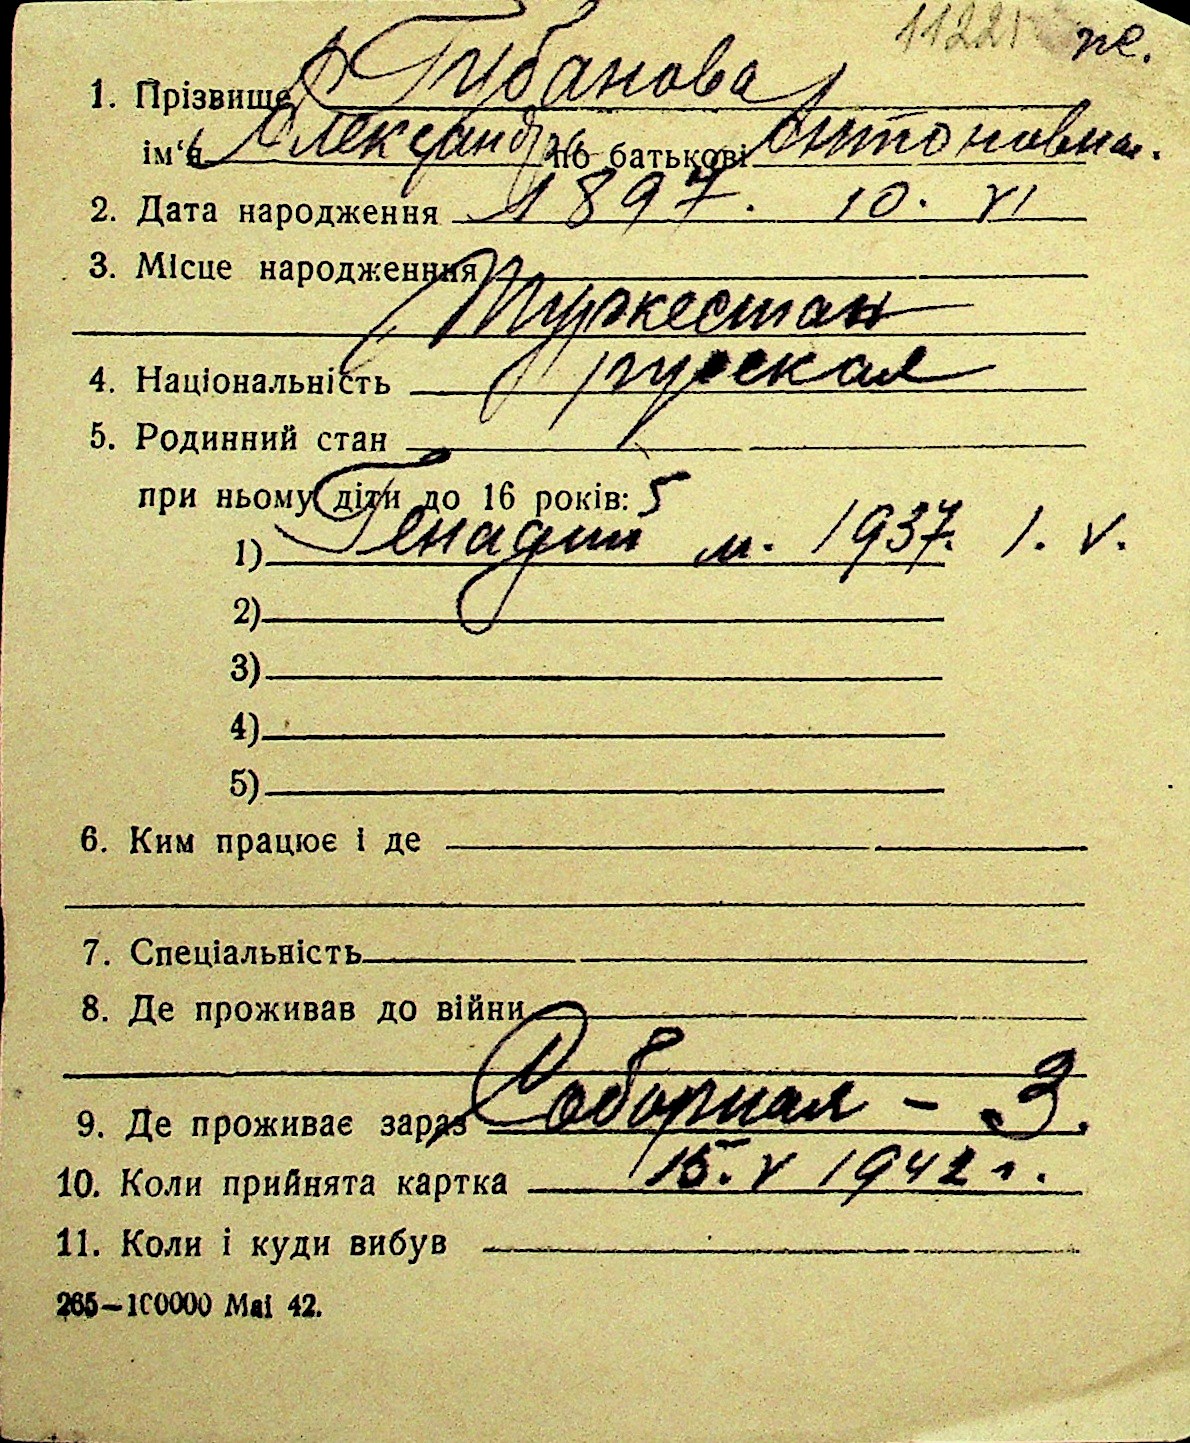 11221 же.
1. Прізвище Губанова
ім‘я Александр по батькові Антоновна.
2. Дата народження 1897. 10. VI
3. Місце народженння
Туркестан
4. Національність русская
5. Родинний стан
при ньому діти до 16 років: 5
1) Генадий м. 1937. 1. V.
2)
3)
4)
5)
6. Ким працює і де
7. Спеціальність
8. Де проживав до війни
9. Де проживає зараз Соборная - 3.
10. Коли прийнята картка 15. V 1942 г.
11. Коли і куди вибув
265—100000 Mai 42.